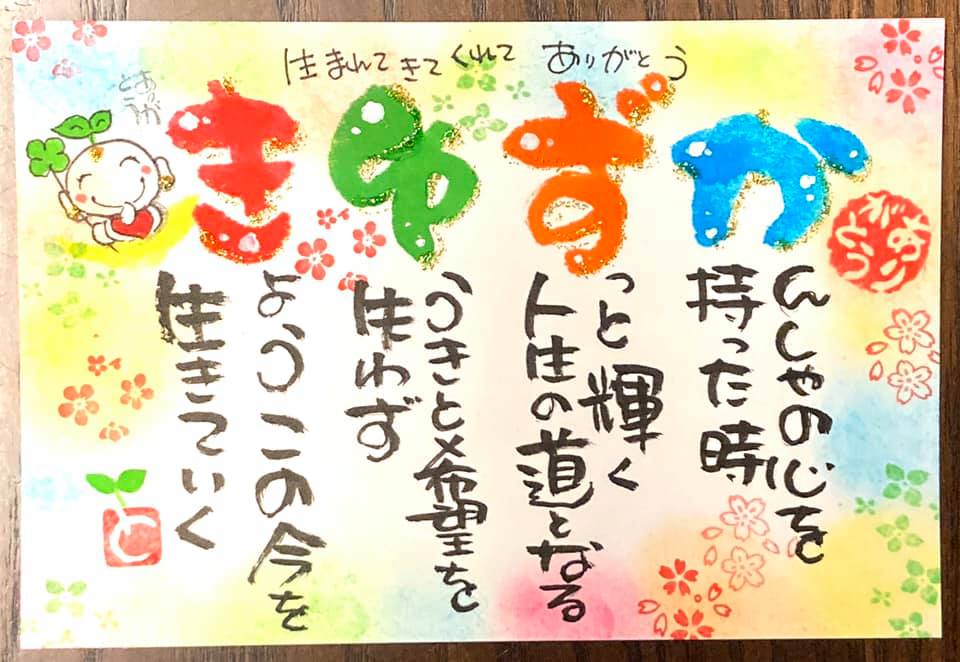 生まれてきてくれて ありがとう
かんしゃの心を
持った時
ずっと輝く
人生の道となる
ゆうきと希望を
失わず
きようこの今を
生きていく
ありが
とう
ありがとう